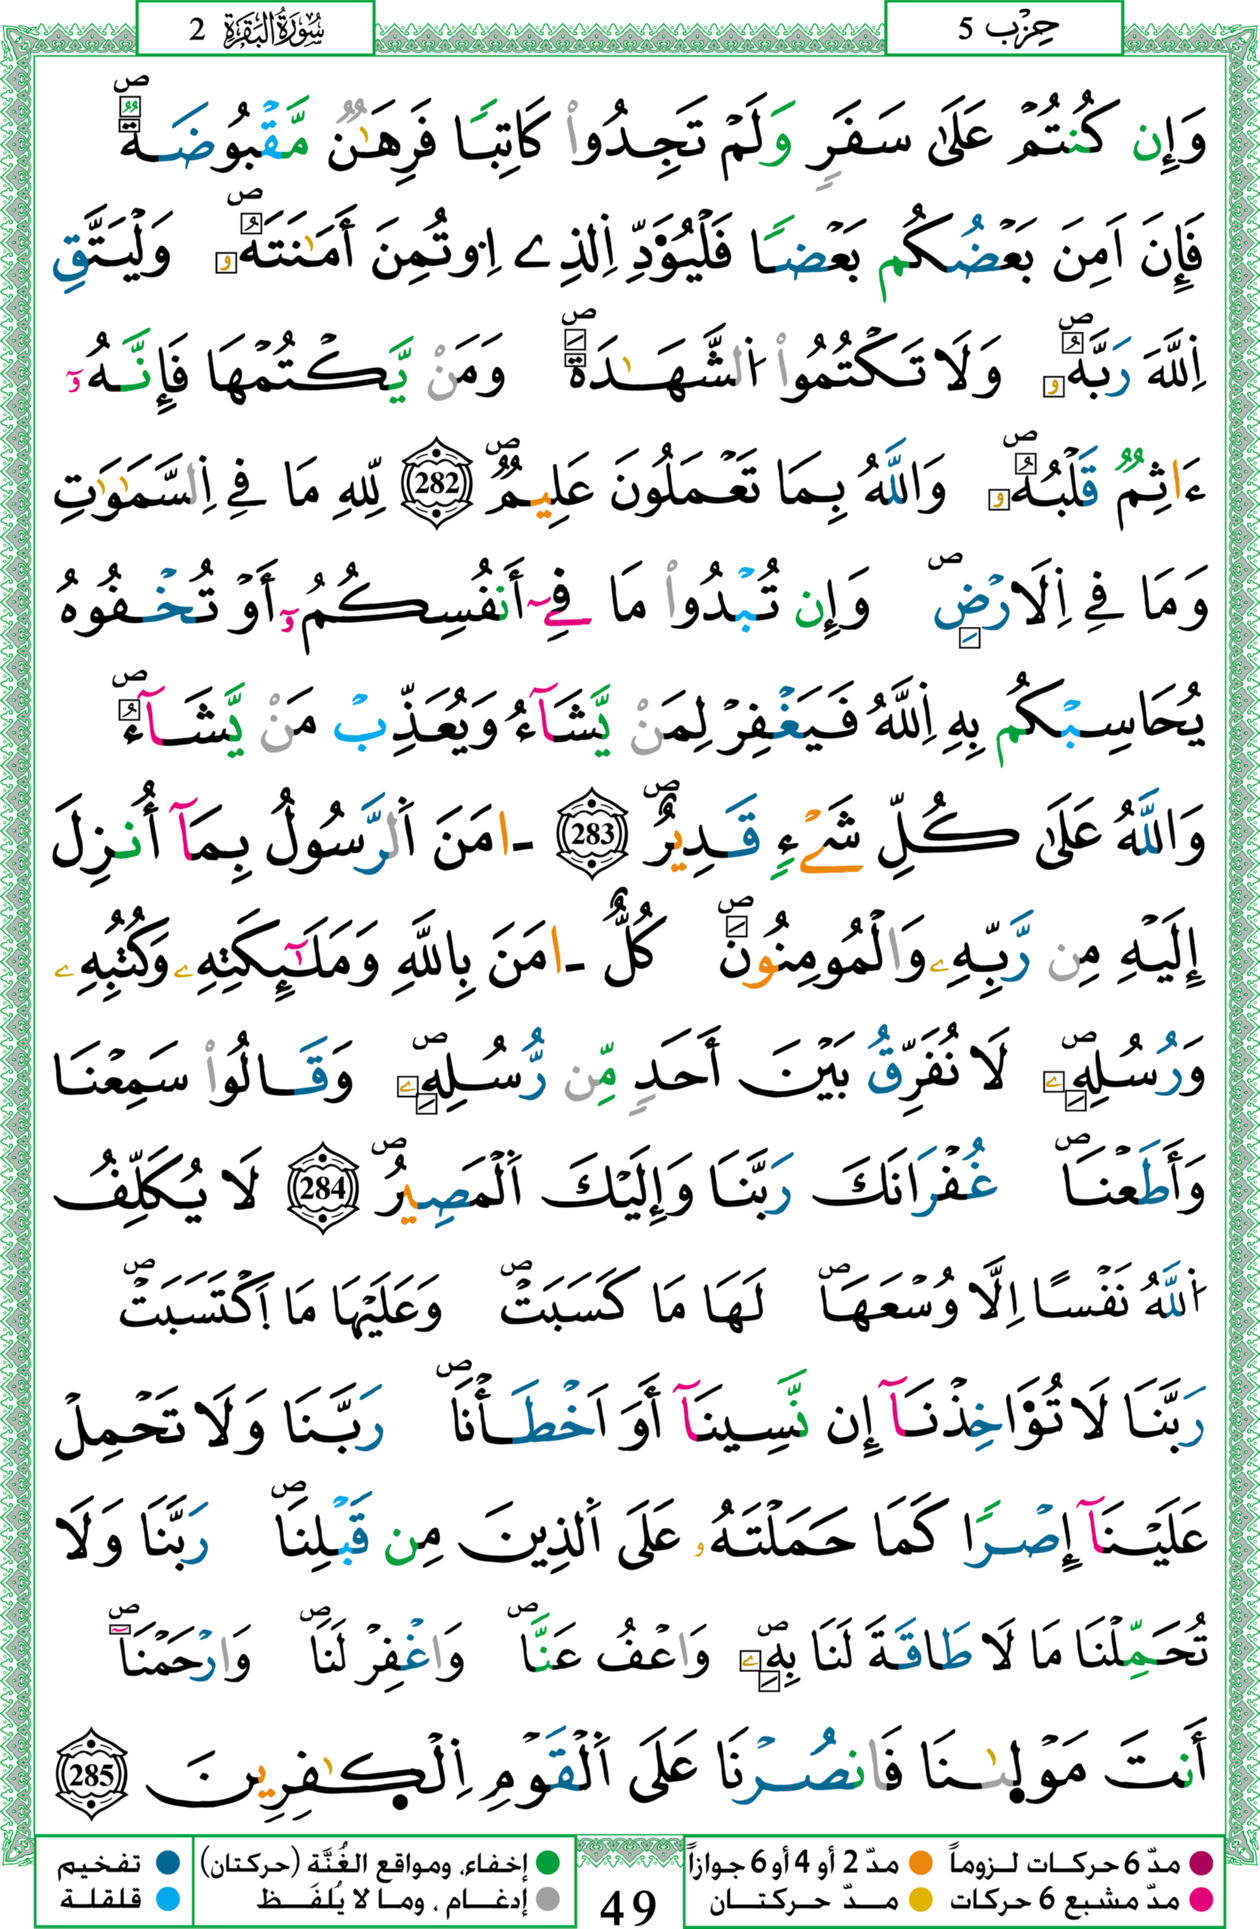 حِزْب 5
سُورَةُ البَقَرَةِ 2
وَإِن كُنتُمْ عَلَىٰ سَفَرٍ وَلَمْ تَجِدُوا۟ كَاتِبًا فَرِهَٰنٌ مَّقْبُوضَةٌۖ
فَإِنَ اَمِنَ بَعْضُكُم بَعْضًا فَلْيُؤَدِّ اِ۬لذِے اِ۟وتُمِنَ أَمَٰنَتَهُۥۖ وَلْيَتَّقِ
اِ۬للَّهَ رَبَّهُۥۖ وَلَا تَكْتُمُوا۟ اُ۬لشَّهَٰدَةَۖ وَمَنْ يَّكْتُمْهَا فَإِنَّهُۥٓ
ءَاثِمٌ قَلْبُهُۥۖ وَاللَّهُ بِمَا تَعْمَلُونَ عَلِيمٌۖ 282 لِّلهِ مَا فِے اِ۬لسَّمَٰوَٰتِ
وَمَا فِے اِ۬لَارْضِۖ وَإِن تُبْدُوا۟ مَا فِےٓ أَنفُسِكُمُۥٓ أَوْ تُخْفُوهُ
يُحَاسِبْكُم بِهِ اِ۬للَّهُ فَيَغْفِرْ لِمَنْ يَّشَآءُ وَيُعَذِّبْ مَنْ يَّشَآءُۖ
وَاللَّهُ عَلَىٰ كُلِّ شَےْءٍ قَدِيرٌۖ 283 ـَامَنَ اَ۬لرَّسُولُ بِمَآ أُنزِلَ
إِلَيْهِ مِن رَّبِّهِۦ وَالْمُومِنُونَۖ كُلٌّ ـَامَنَ بِاللَّهِ وَمَلَٰٓئِكَتِهِۦ وَكُتُبِهِۦ
وَرُسُلِهِۦۖ لَا نُفَرِّقُ بَيْنَ أَحَدٍ مِّن رُّسُلِهِۦۖ وَقَالُوا۟ سَمِعْنَا
وَأَطَعْنَاۖ غُفْرَانَكَ رَبَّنَا وَإِلَيْكَ اَ۬لْمَصِيرُۖ 284 لَا يُكَلِّفُ
اُ۬للَّهُ نَفْسًا اِلَّا وُسْعَهَاۖ لَهَا مَا كَسَبَتْۖ وَعَلَيْهَا مَا اَ۪كْتَسَبَتْۖ
رَبَّنَا لَا تُؤَاخِذْنَآ إِن نَّسِينَآ أَوَ اَخْطَأْنَاۖ رَبَّنَا وَلَا تَحْمِلْ
عَلَيْنَآ إِصْرًا كَمَا حَمَلْتَهُۥ عَلَى اَ۬لذِينَ مِن قَبْلِنَاۖ رَبَّنَا وَلَا
تُحَمِّلْنَا مَا لَا طَاقَةَ لَنَا بِهِۦۖ وَاعْفُ عَنَّاۖ وَاغْفِرْ لَنَاۖ وَارْحَمْنَآۖ
أَنتَ مَوْل۪ىٰنَا فَانصُرْنَا عَلَى اَ۬لْقَوْمِ اِ۬لْكٰ۪فِرِينَ 285
مدّ 6 حركات لـزوماً مدّ 2 أو 4 أو 6 جوازاً
مدّ مشبع 6 حركات مــدّ حـركتـان
49
إخفاء، ومواقع الغُنَّة (حركتان) تفخيم
إدغـام ، ومـا لا يُلفَـظ قلقلـة